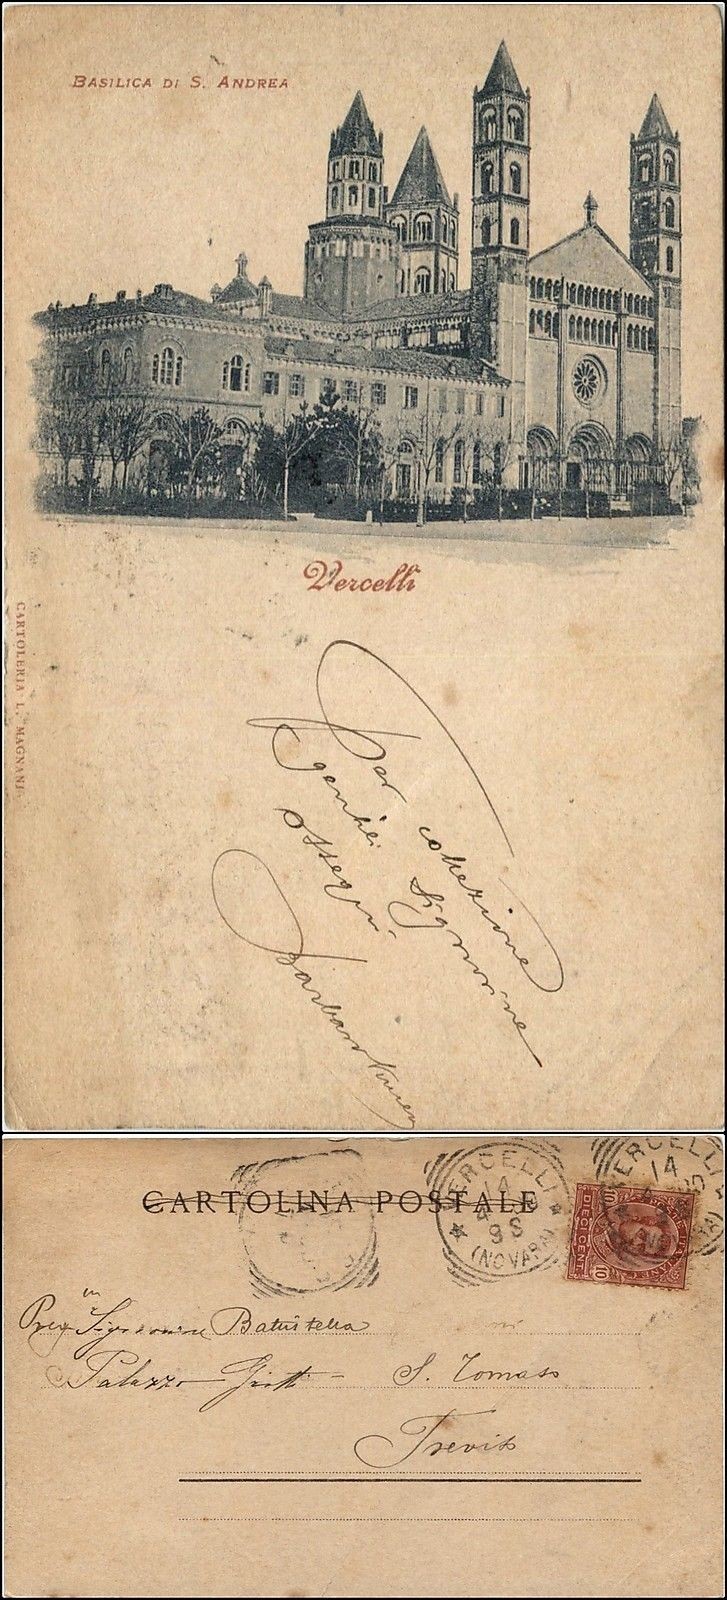 BASILICA DI S. ANDREA
Vercelli
CARTOLERIA L. MAGNANI
Per collezione
gentili Signorine
ossequi
CARTOLINA POSTALE
VERCELLI
14
98
(NOVARA)
VERCELLI
14
DIECI CENT.
10
10
Preg.me Signorine Battistella
Palazzo Gritti - S. Tomaso
Treviso